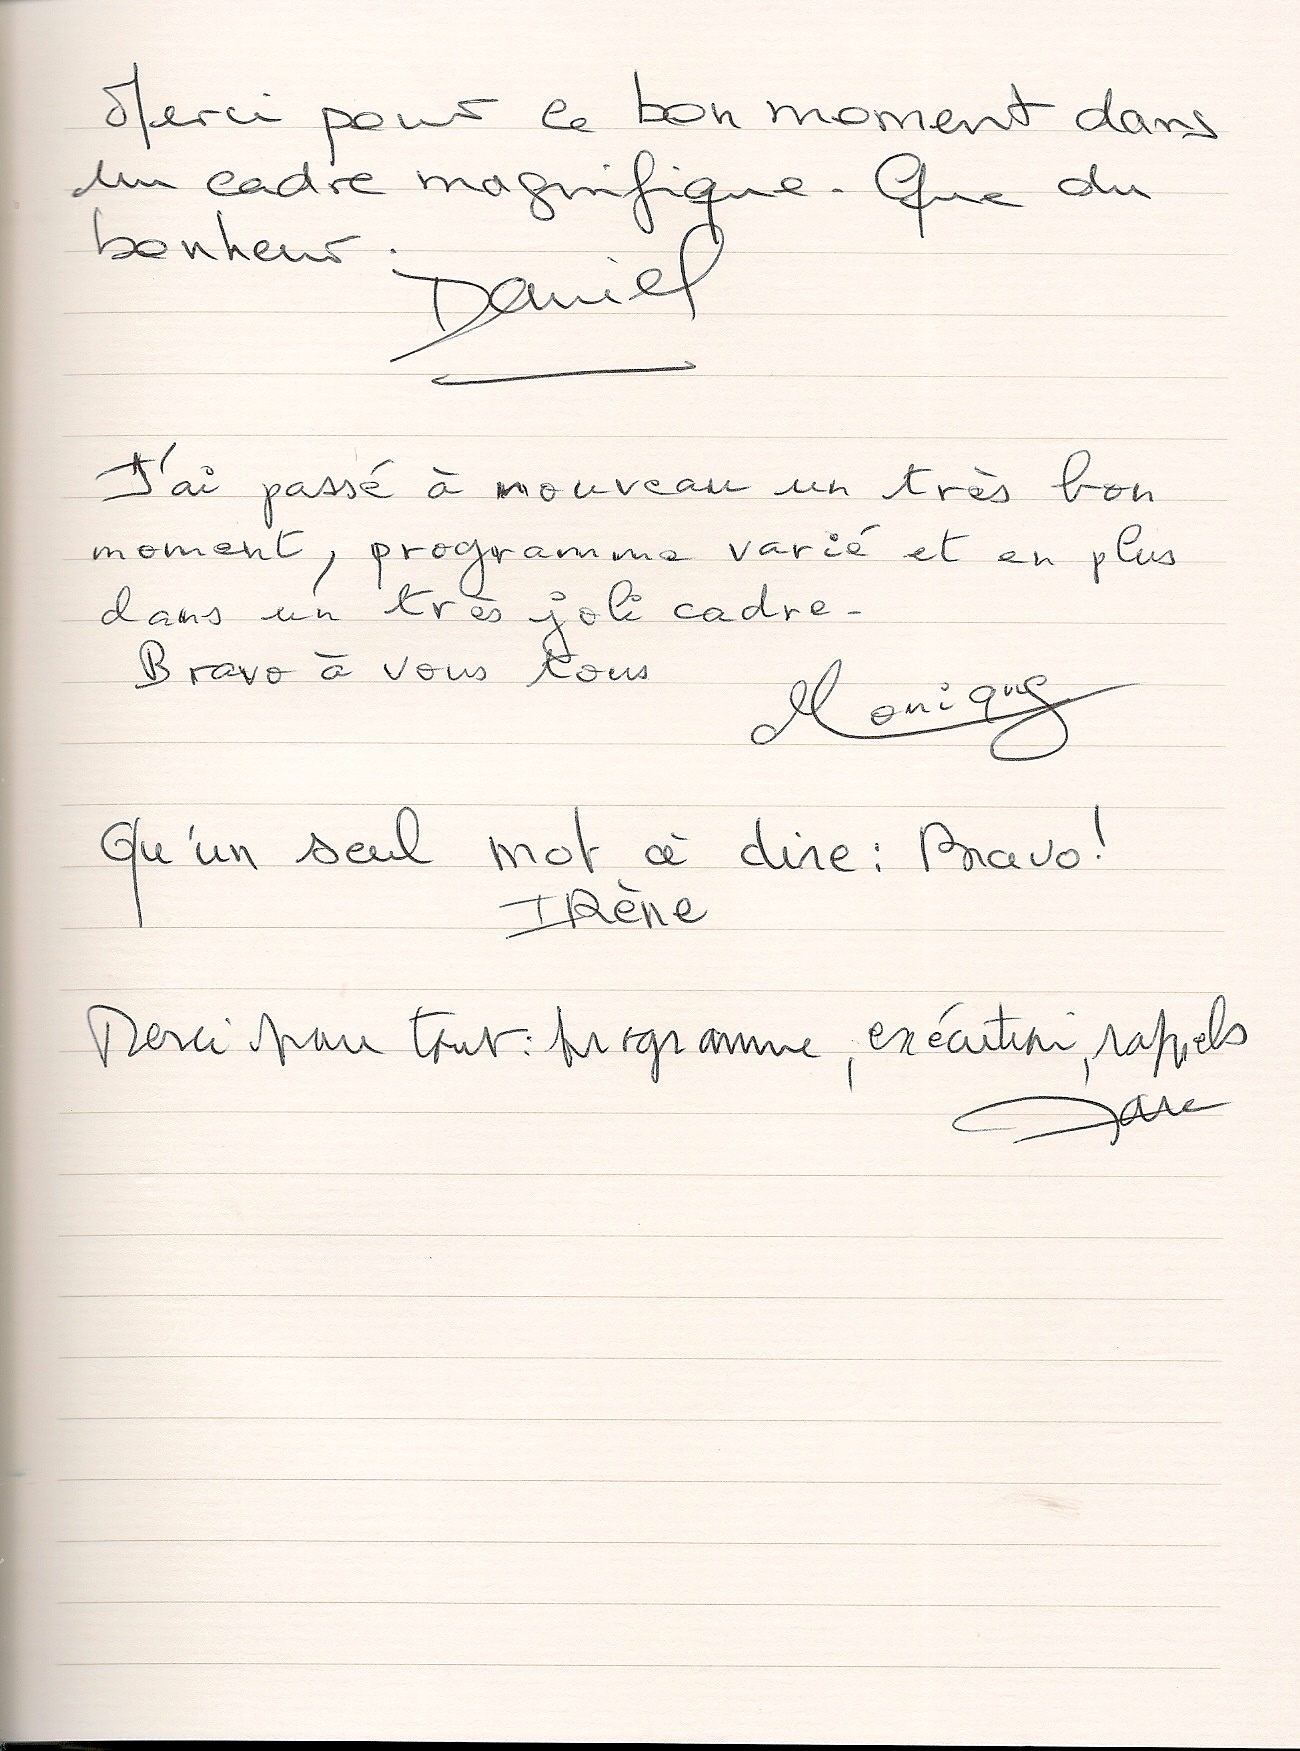 Merci pour ce bon moment dans
un cadre magnifique. Que du
bonheur.
Daniel
J'ai passé à nouveau un très bon
moment, programme varié et en plus
dans un très joli cadre.
Bravo à vous tous
Monique
Qu'un seul mot à dire : Bravo!
IRène
Merci pour tout : programme, exécution, rappels